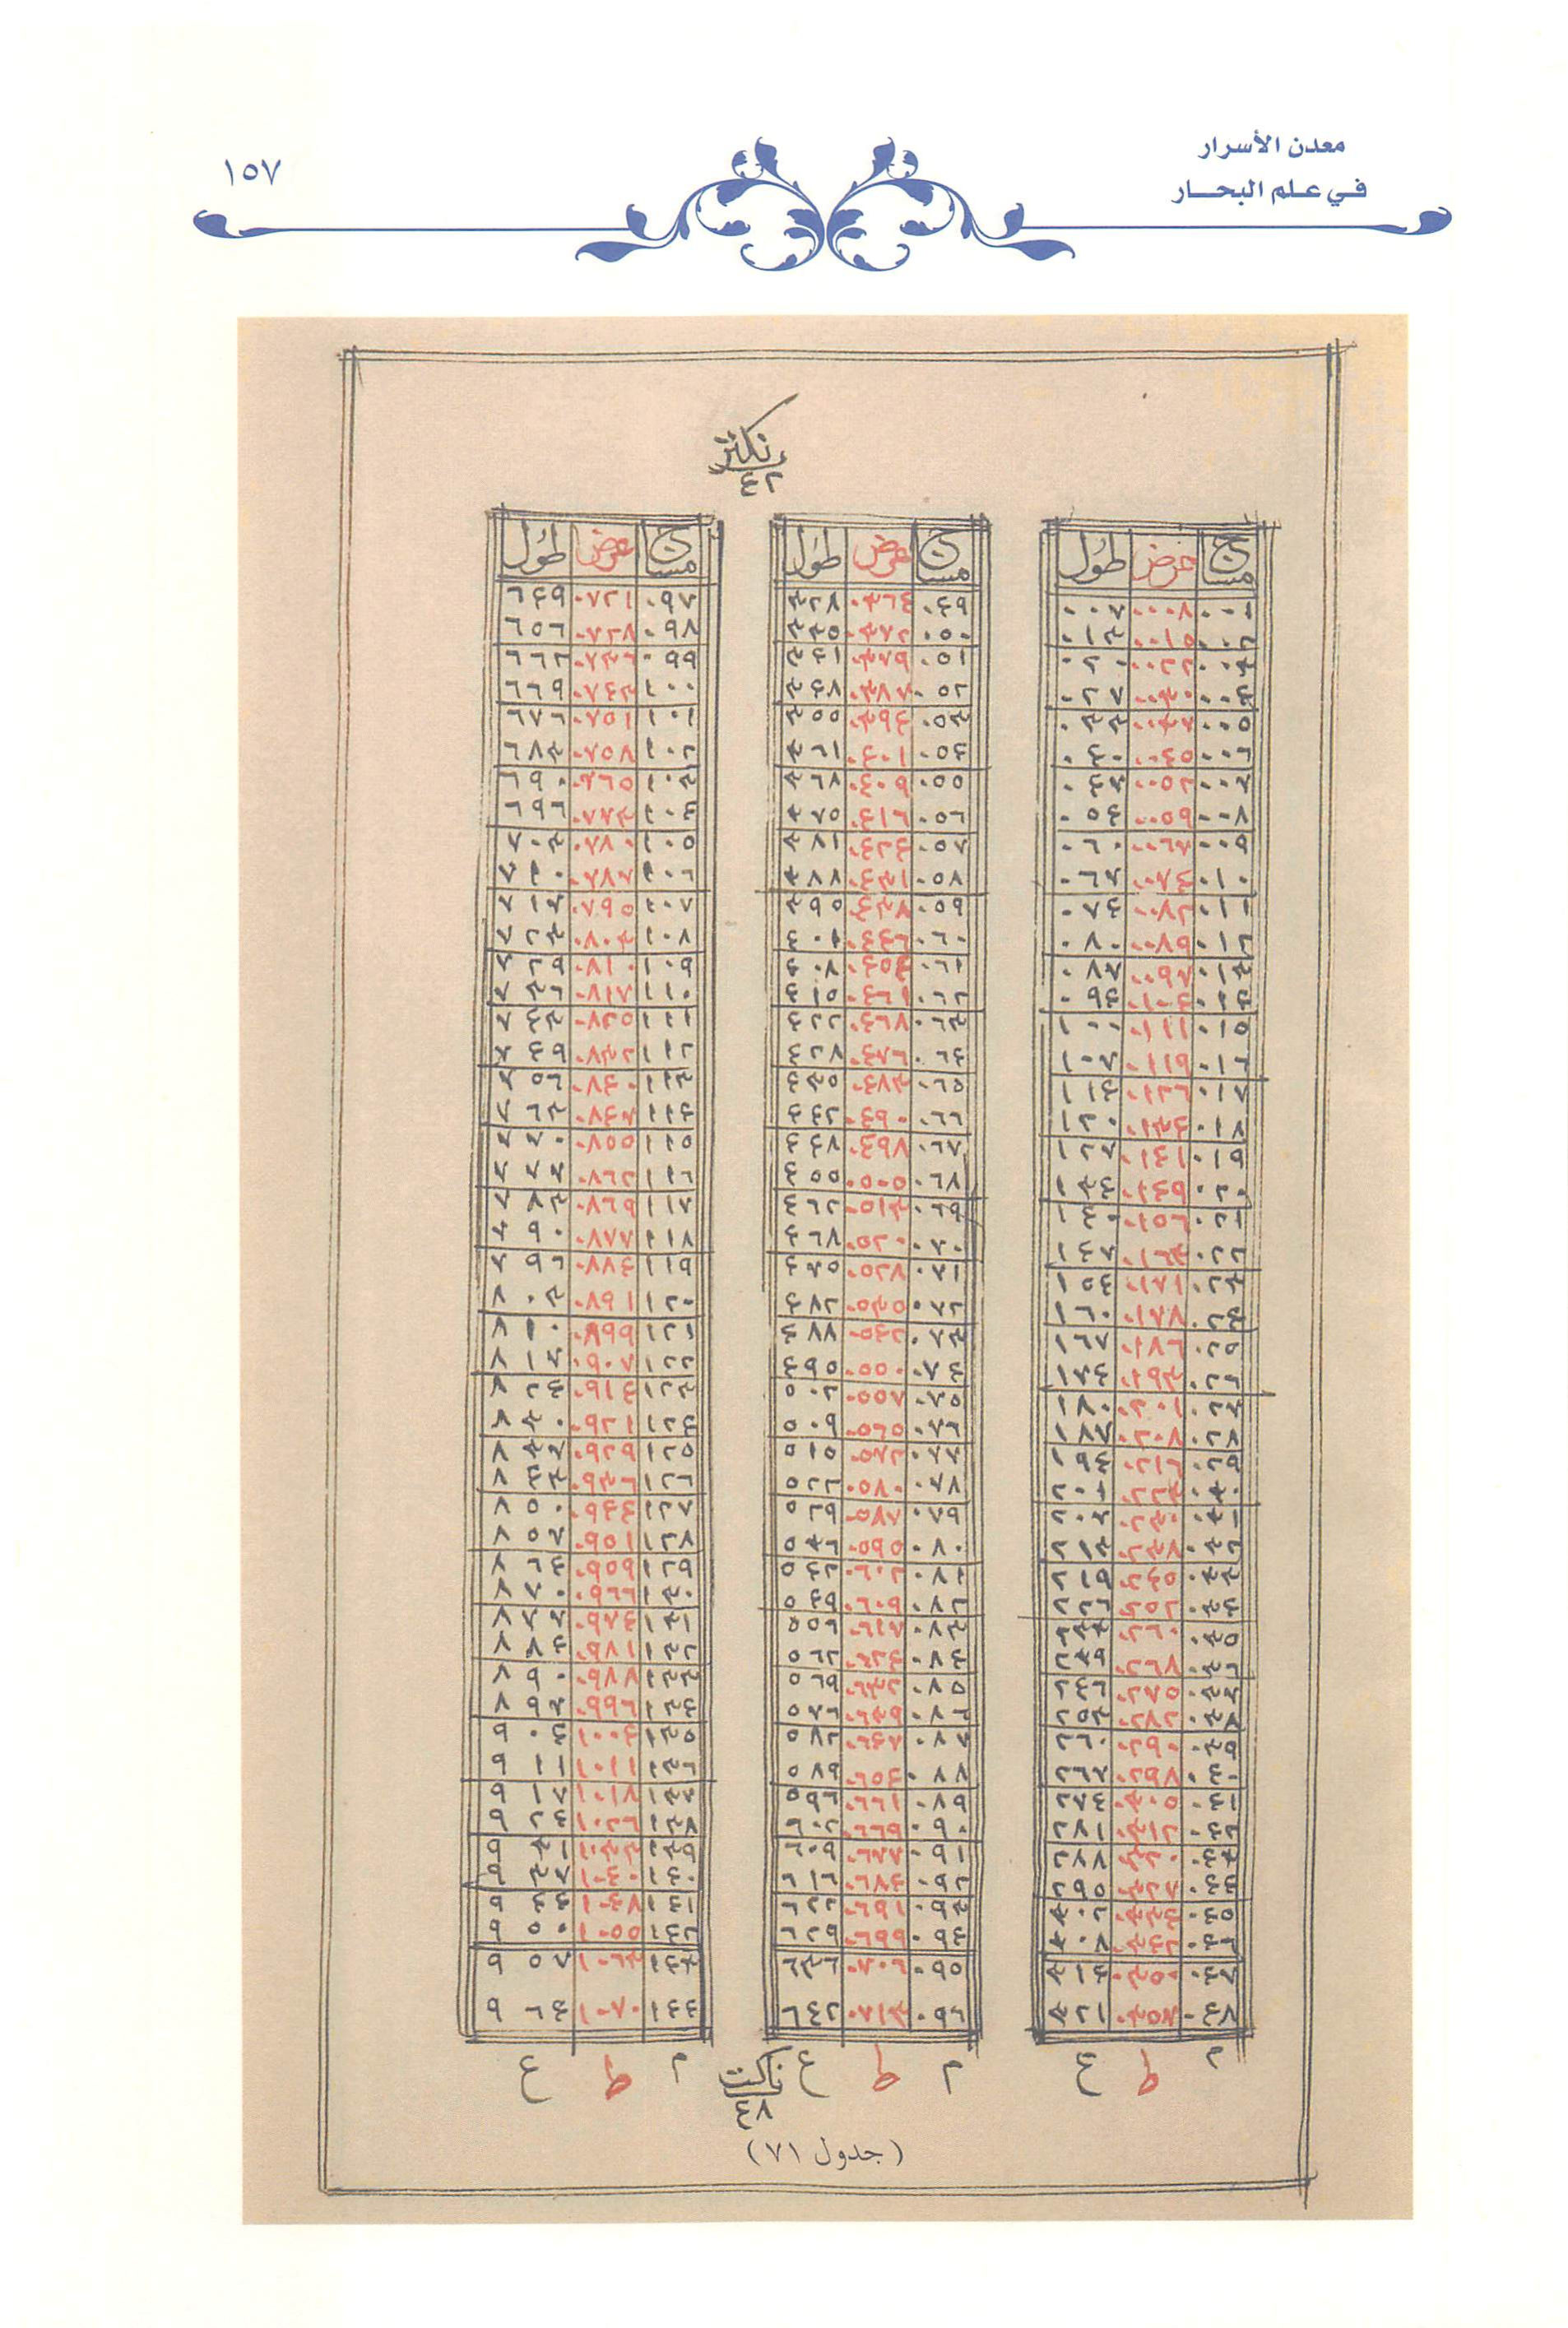 معدن الأسرار
في علم البحـــار
١٥٧
نكتر
٤٢
مساج عرض طول
٠٠١ ٠٠٠٨ ٠٠٧
٠٠٢ ٠٠١٥ ٠١٣
٠٠٣ ٠٠٢٢ ٠٢٠
٠٠٤ ٠٠٣٠ ٠٢٧
٠٠٥ ٠٠٣٧ ٠٣٣
٠٠٦ ٠٠٤٥ ٠٤٠
٠٠٧ ٠٠٥٢ ٠٤٧
٠٠٨ ٠٠٥٩ ٠٥٤
٠٠٩ ٠٠٦٧ ٠٦٠
٠١٠ ٠٠٧٤ ٠٦٧
٠١١ ٠٠٨٢ ٠٧٤
٠١٢ ٠٠٨٩ ٠٨٠
٠١٣ ٠٠٩٧ ٠٨٧
٠١٤ ٠١٠٤ ٠٩٤
٠١٥ ٠١١١ ١٠٠
٠١٦ ٠١١٩ ١٠٧
٠١٧ ٠١٢٦ ١١٤
٠١٨ ٠١٣٤ ١٢٠
٠١٩ ٠١٤١ ١٢٧
٠٢٠ ٠١٤٩ ١٣٤
٠٢١ ٠١٥٦ ١٤٠
٠٢٢ ٠١٦٣ ١٤٧
٠٢٣ ٠١٧١ ١٥٤
٠٢٤ ٠١٧٨ ١٦٠
٠٢٥ ٠١٨٦ ١٦٧
٠٢٦ ٠١٩٣ ١٧٤
٠٢٧ ٠٢٠١ ١٨٠
٠٢٨ ٠٢٠٨ ١٨٧
٠٢٩ ٠٢١٦ ١٩٤
٠٣٠ ٠٢٢٣ ٢٠١
٠٣١ ٠٢٣٠ ٢٠٧
٠٣٢ ٠٢٣٧ ٢١٣
٠٣٣ ٠٢٤٥ ٢١٩
٠٣٤ ٠٢٥٢ ٢٢٦
٠٣٥ ٠٢٦٠ ٢٣٣
٠٣٦ ٠٢٦٧ ٢٣٩
٠٣٧ ٠٢٧٥ ٢٤٦
٠٣٨ ٠٢٨٢ ٢٥٣
٠٣٩ ٠٢٩٠ ٢٦٠
٠٤٠ ٠٢٩٧ ٢٦٧
٠٤١ ٠٣٠٥ ٢٧٤
٠٤٢ ٠٣١٢ ٢٨١
٠٤٣ ٠٣٢٠ ٢٨٨
٠٤٤ ٠٣٢٧ ٢٩٥
٠٤٥ ٠٣٣٤ ٣٠٢
٠٤٦ ٠٣٤٢ ٣٠٨
٠٤٧ ٠٣٥٠ ٣١٤
٠٤٨ ٠٣٥٧ ٣٢١
م ط ع
مساج عرض طول
٠٤٩ ٠٣٦٤ ٣٢٨
٠٥٠ ٠٣٧٢ ٣٣٥
٠٥١ ٠٣٧٩ ٣٤١
٠٥٢ ٠٣٨٧ ٣٤٨
٠٥٣ ٠٣٩٤ ٣٥٥
٠٥٤ ٠٤٠١ ٣٦١
٠٥٥ ٠٤٠٩ ٣٦٨
٠٥٦ ٠٤١٦ ٣٧٥
٠٥٧ ٠٤٢٤ ٣٨١
٠٥٨ ٠٤٣١ ٣٨٨
٠٥٩ ٠٤٣٨ ٣٩٥
٠٦٠ ٠٤٤٦ ٤٠١
٠٦١ ٠٤٥٣ ٤٠٨
٠٦٢ ٠٤٦١ ٤١٥
٠٦٣ ٠٤٦٨ ٤٢٢
٠٦٤ ٠٤٧٦ ٤٢٨
٠٦٥ ٠٤٨٣ ٤٣٥
٠٦٦ ٠٤٩٠ ٤٤٢
٠٦٧ ٠٤٩٨ ٤٤٨
٠٦٨ ٠٥٠٥ ٤٥٥
٠٦٩ ٠٥١٣ ٤٦٢
٠٧٠ ٠٥٢٠ ٤٦٨
٠٧١ ٠٥٢٨ ٤٧٥
٠٧٢ ٠٥٣٥ ٤٨٢
٠٧٣ ٠٥٤٢ ٤٨٨
٠٧٤ ٠٥٥٠ ٤٩٥
٠٧٥ ٠٥٥٧ ٥٠٢
٠٧٦ ٠٥٦٥ ٥٠٩
٠٧٧ ٠٥٧٢ ٥١٥
٠٧٨ ٠٥٨٠ ٥٢٢
٠٧٩ ٠٥٨٧ ٥٢٩
٠٨٠ ٠٥٩٥ ٥٣٦
٠٨١ ٠٦٠٢ ٥٤٢
٠٨٢ ٠٦٠٩ ٥٤٩
٠٨٣ ٠٦١٧ ٥٥٦
٠٨٤ ٠٦٢٤ ٥٦٢
٠٨٥ ٠٦٣٢ ٥٦٩
٠٨٦ ٠٦٣٩ ٥٧٦
٠٨٧ ٠٦٤٧ ٥٨٢
٠٨٨ ٠٦٥٤ ٥٨٩
٠٨٩ ٠٦٦١ ٥٩٦
٠٩٠ ٠٦٦٩ ٦٠٢
٠٩١ ٠٦٧٧ ٦٠٩
٠٩٢ ٠٦٨٤ ٦١٦
٠٩٣ ٠٦٩١ ٦٢٢
٠٩٤ ٠٦٩٩ ٦٢٩
٠٩٥ ٠٧٠٦ ٦٣٦
٠٩٦ ٠٧١٣ ٦٤٢
م ط ع
مساج عرض طول
٠٩٧ ٠٧٢١ ٦٤٩
٠٩٨ ٠٧٢٨ ٦٥٦
٠٩٩ ٠٧٣٦ ٦٦٢
١٠٠ ٠٧٤٣ ٦٦٩
١٠١ ٠٧٥١ ٦٧٦
١٠٢ ٠٧٥٨ ٦٨٣
١٠٣ ٠٧٦٥ ٦٩٠
١٠٤ ٠٧٧٣ ٦٩٦
١٠٥ ٠٧٨٠ ٧٠٣
١٠٦ ٠٧٨٧ ٧١٠
١٠٧ ٠٧٩٥ ٧١٧
١٠٨ ٠٨٠٣ ٧٢٣
١٠٩ ٠٨١٠ ٧٢٩
١١٠ ٠٨١٧ ٧٣٦
١١١ ٠٨٢٥ ٧٤٣
١١٢ ٠٨٣٢ ٧٤٩
١١٣ ٠٨٤٠ ٧٥٦
١١٤ ٠٨٤٧ ٧٦٣
١١٥ ٠٨٥٥ ٧٧٠
١١٦ ٠٨٦٢ ٧٧٧
١١٧ ٠٨٦٩ ٧٨٣
١١٨ ٠٨٧٧ ٧٩٠
١١٩ ٠٨٨٤ ٧٩٦
١٢٠ ٠٨٩١ ٨٠٣
١٢١ ٠٨٩٩ ٨١٠
١٢٢ ٠٩٠٧ ٨١٧
١٢٣ ٠٩١٤ ٨٢٤
١٢٤ ٠٩٢١ ٨٣٠
١٢٥ ٠٩٢٩ ٨٣٧
١٢٦ ٠٩٣٦ ٨٤٣
١٢٧ ٠٩٤٤ ٨٥٠
١٢٨ ٠٩٥١ ٨٥٧
١٢٩ ٠٩٥٩ ٨٦٤
١٣٠ ٠٩٦٦ ٨٧٠
١٣١ ٠٩٧٤ ٨٧٧
١٣٢ ٠٩٨١ ٨٨٤
١٣٣ ٠٩٨٨ ٨٩٠
١٣٤ ٠٩٩٦ ٨٩٧
١٣٥ ١٠٠٤ ٩٠٤
١٣٦ ١٠١١ ٩١١
١٣٧ ١٠١٨ ٩١٧
١٣٨ ١٠٢٦ ٩٢٤
١٣٩ ١٠٣٣ ٩٣١
١٤٠ ١٠٤٠ ٩٣٨
١٤١ ١٠٤٧ ٩٤٤
١٤٢ ١٠٥٥ ٩٥٠
١٤٣ ١٠٦٣ ٩٥٧
١٤٤ ١٠٧٠ ٩٦٤
م ط ع
ناكت
٤٨
(جدول ٧١)